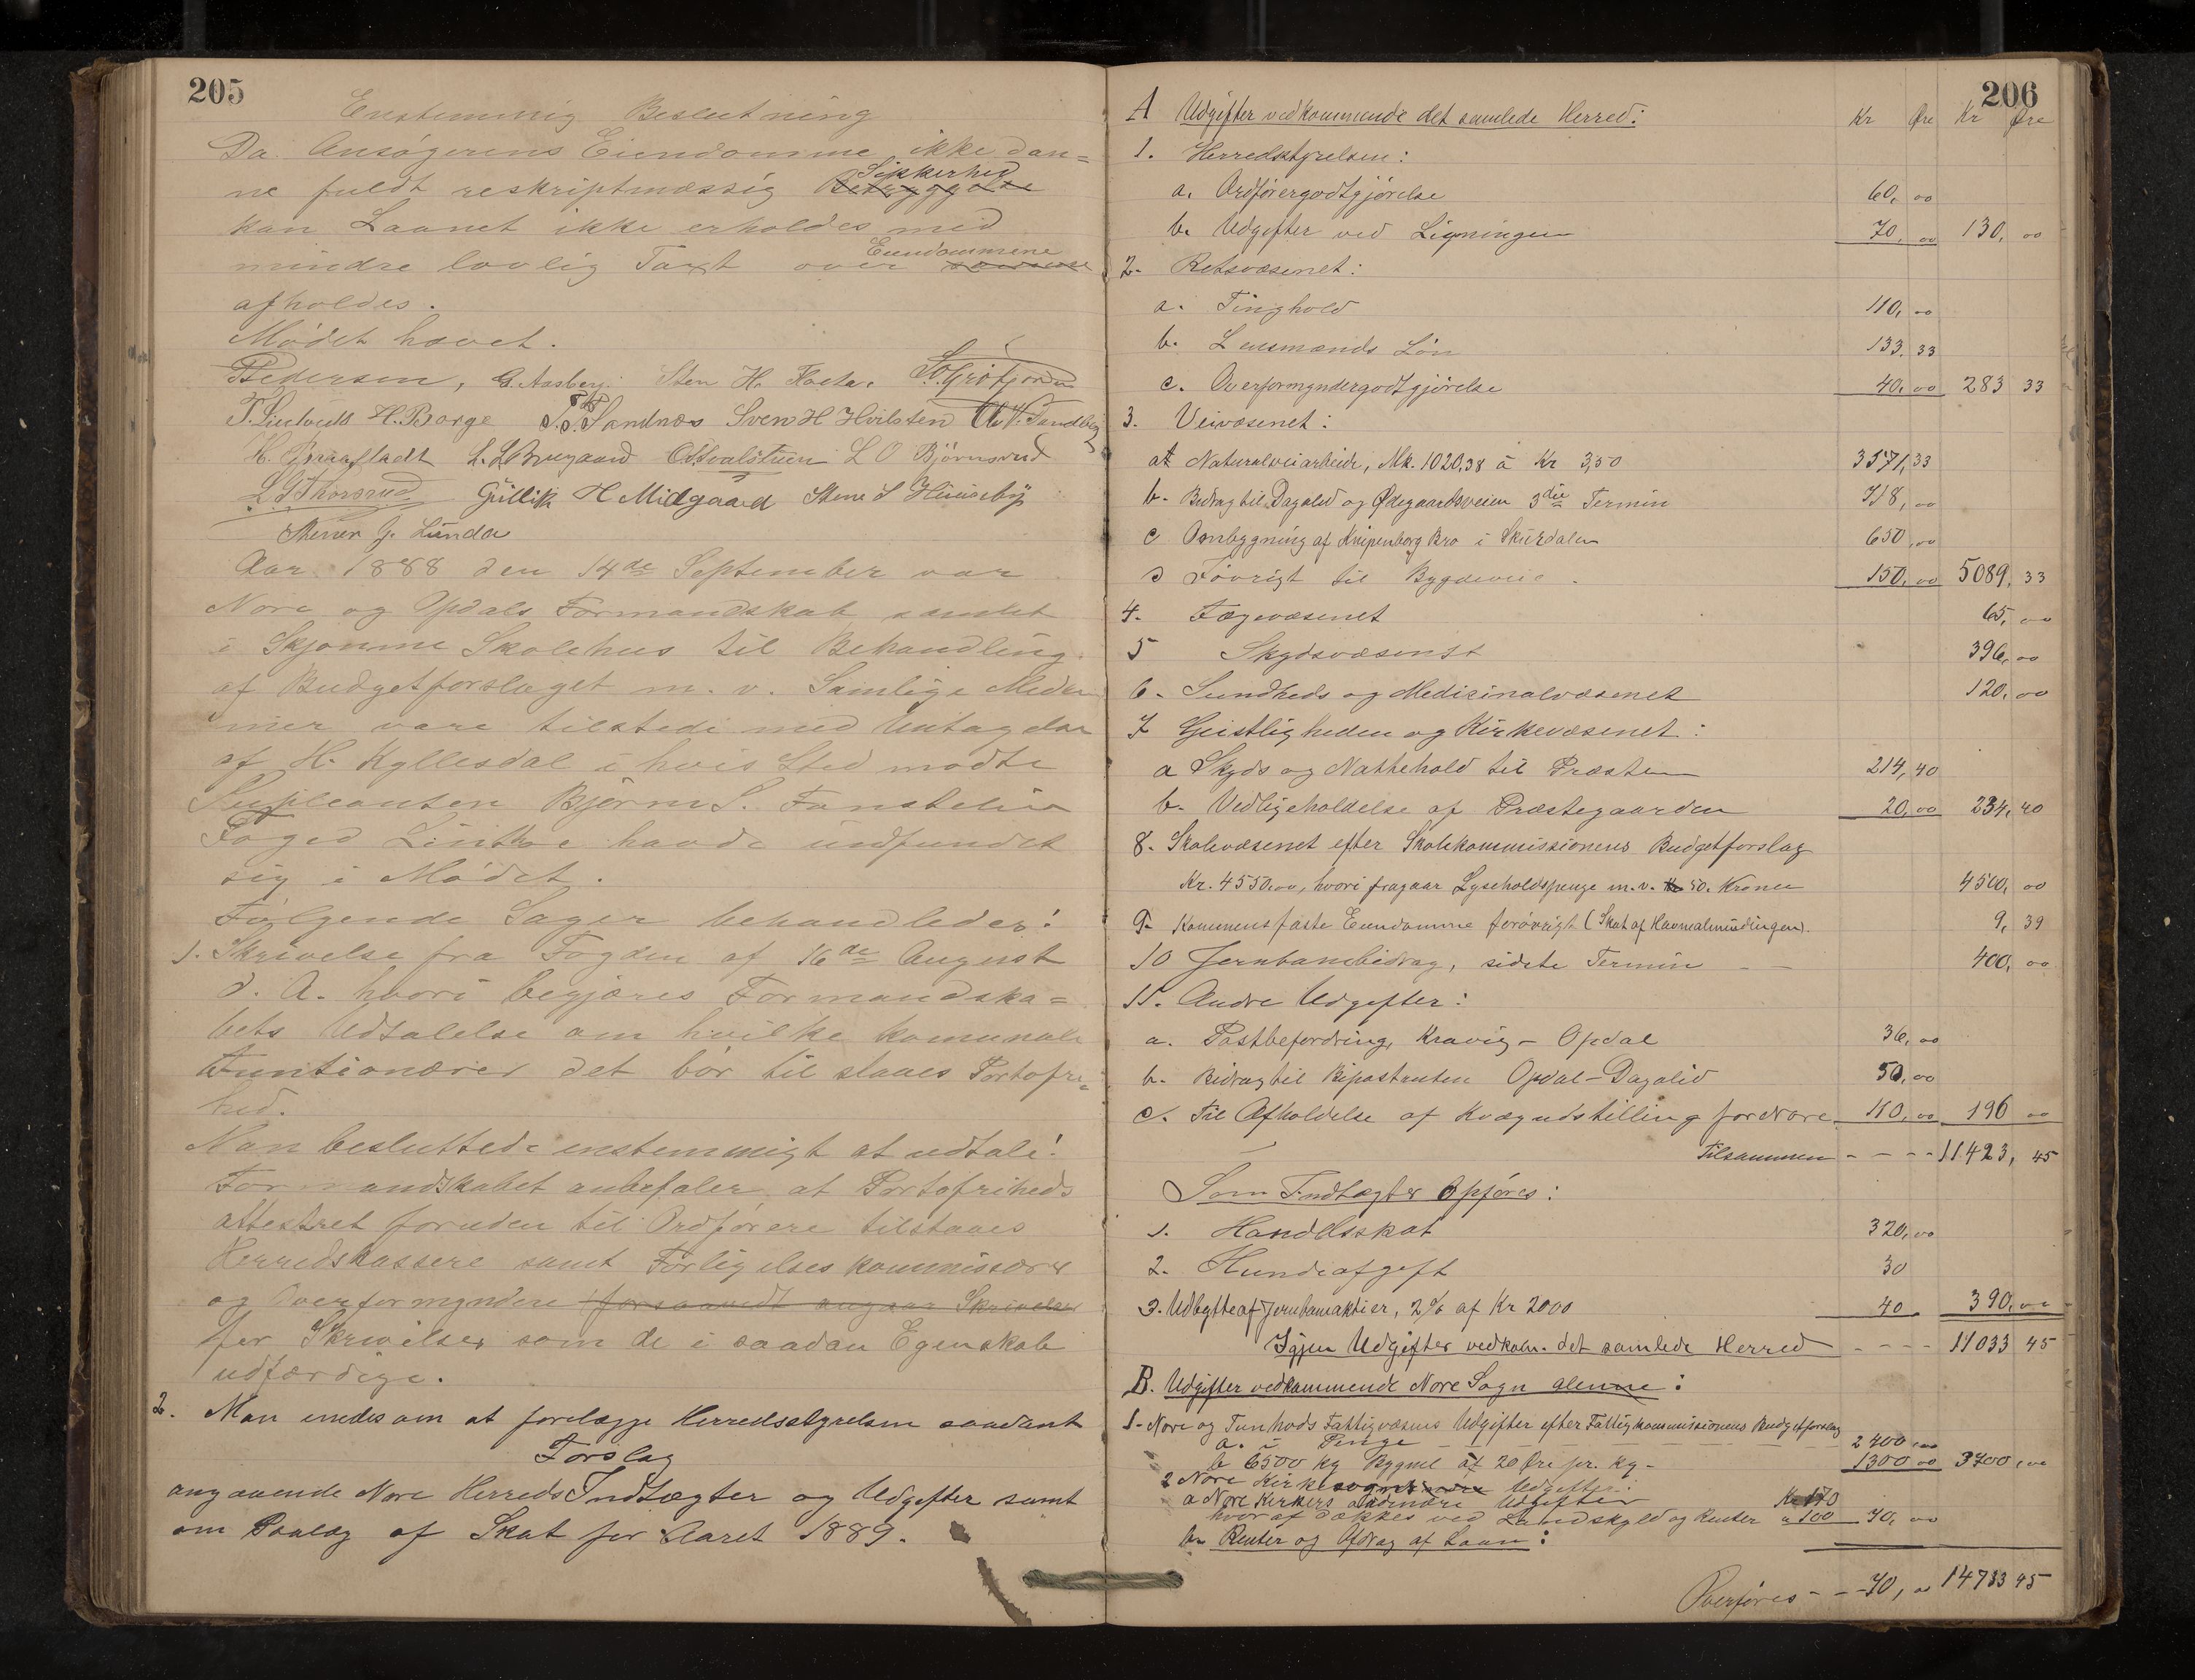 205
Enstemmig Beslutning
Da Ansøgerens Eiendomme ikke dan=
ne fuldt reskriptmæssig Betryggelse Sikkerhed
kan Laanet ikke erholdes med
mindre lovlig Taxt over Eiendommene
afholdes.
Mødet hævet.
Pedersen, G. Aasberg. Sten H.
H. Borge T. S. Sandnæs Sven H Hvilsten
L O Bjørnsrud
L G Thorsrud Gullik H Midgaard Stene S
Stener G. Lunda
Aar 1888 den 14de September var
Nore og Opdals Formandskab samlet
i Skjønne Skolehus til Behandling
af Budgetforslaget m. v. Samlige Medem
mer vare tilstede med Untagelse
af H. Kyllesdal i hvis Sted mødte
Supleanten Bjørn S.
Foged Linthoe havde indfundet
sig i Mødet.
Følgende Sager behandledes:
1. Skrivelse fra Fogden af 16de August
d. A. hvori begjæres Formandska=
bets Udtalelse om hvilke komunale
Funtionærer det bør til staaes Portofri=
hed.
Man besluttede enstemmigt at udtale:
Formandskabet anbefaler at Portofriheds
attestret foruden til Ordførere tilstaaes
Herredskassere samt Forligelseskommissærer
og Overformyndere forsaavidt angaar Skrivelser
for Skrivelser som de i saadan Egenskab
udfærdige.
2. Man enedes om at forelægge Herredsstyrelsen saadant
Forslag
angaaende Nore Herreds Indtægter og Udgifter samt
om Paalæg af Skat for Aaret 1889.
206
A Udgifter vedkommende det samlede Herred: Kr Øre Kr Øre
1. Herredsstyrelsen:
a. Ordførergodtgjørelse 60, 00
b. Udgifter ved Ligningen 70, 00 130, 00
2. Retsvæsenet:
a. Tinghold 110, 00
b. Lensmænds Løn 133, 33
c. Overformyndergodtgjørelse 40, 00 283 33
3. Veivæsenet:
a Naturalveiarbeide, Mk. 1020,38 á Kr 3,50 3571,33
b. Bidrag til Dagalid og Ødegaardsveien 3die Termin 718, 00
c Ombygning af Knipenborg Bro i Skurdalen 650,00
d Iøvrigt til Bygdeveie 150, 00 5089, 33
4. Fogevæsenet 65, 00
5 Skydsvæsenst 396, 00
6. Sundheds og Medicinalvæsenet 120, 00
7 Geistligheden og Kirkevæsenet:
a Skyds og Nattehold til Præsten 214, 40
b. Vedligeholdelse af Præstegaarden 20, 00 234, 40
8. Skolevæsenet efter Skolekommissionens Budgetforslag
Kr. 4550.00, hvori fragaar Lyseholdspenge m. v. Kr 50. Kroner 4500, 00
9. Kommunens faste Eiendomme forøvrigt (Skat af Havnealmindingen). 9, 39
10 Jernbanebidrag, sidste Termin 400, 00
11. Andre Udgifter:
a. Postbefordring, Kravig - Opdal 36, 00
b. Bidrag til Bipostruten Opdal - Dagalid 50, 00
c. Til Afholdelse af Kvægudstilling for Nore 110, 00 196 00
Tilsammen - - - - 11423, 45
Som Indtægter Opføres:
1. Handelsskat 320, 00
2. Hundeafgift 30
3. Udbytte af Jernbaneaktier, 2% af Kr 2000 40 390, 00
Igjen Udgifter vedkom. det samlede Herred - - - - 11033 45
B. Udgifter vedkommende Nore Sogn alenne:
1. Nore og Tunhovds Fattigvæsens Udgifter efter Fattigkommissionens Budgetforslag
a. i Penge 2400,00
b 6500 kg Bygmel á 20 Øre pr. kg - 1300 00 3700, 00
2 Nore Kirkesogns Udgifter:
a Nore Kirkers ordinære Udgifter Kr 170
hvoraf dækkes ved Landskyld og Renter " 100 70, 00
b. Renter og Afdrag af Laan:
Overføres - - 70, 00 14733 45